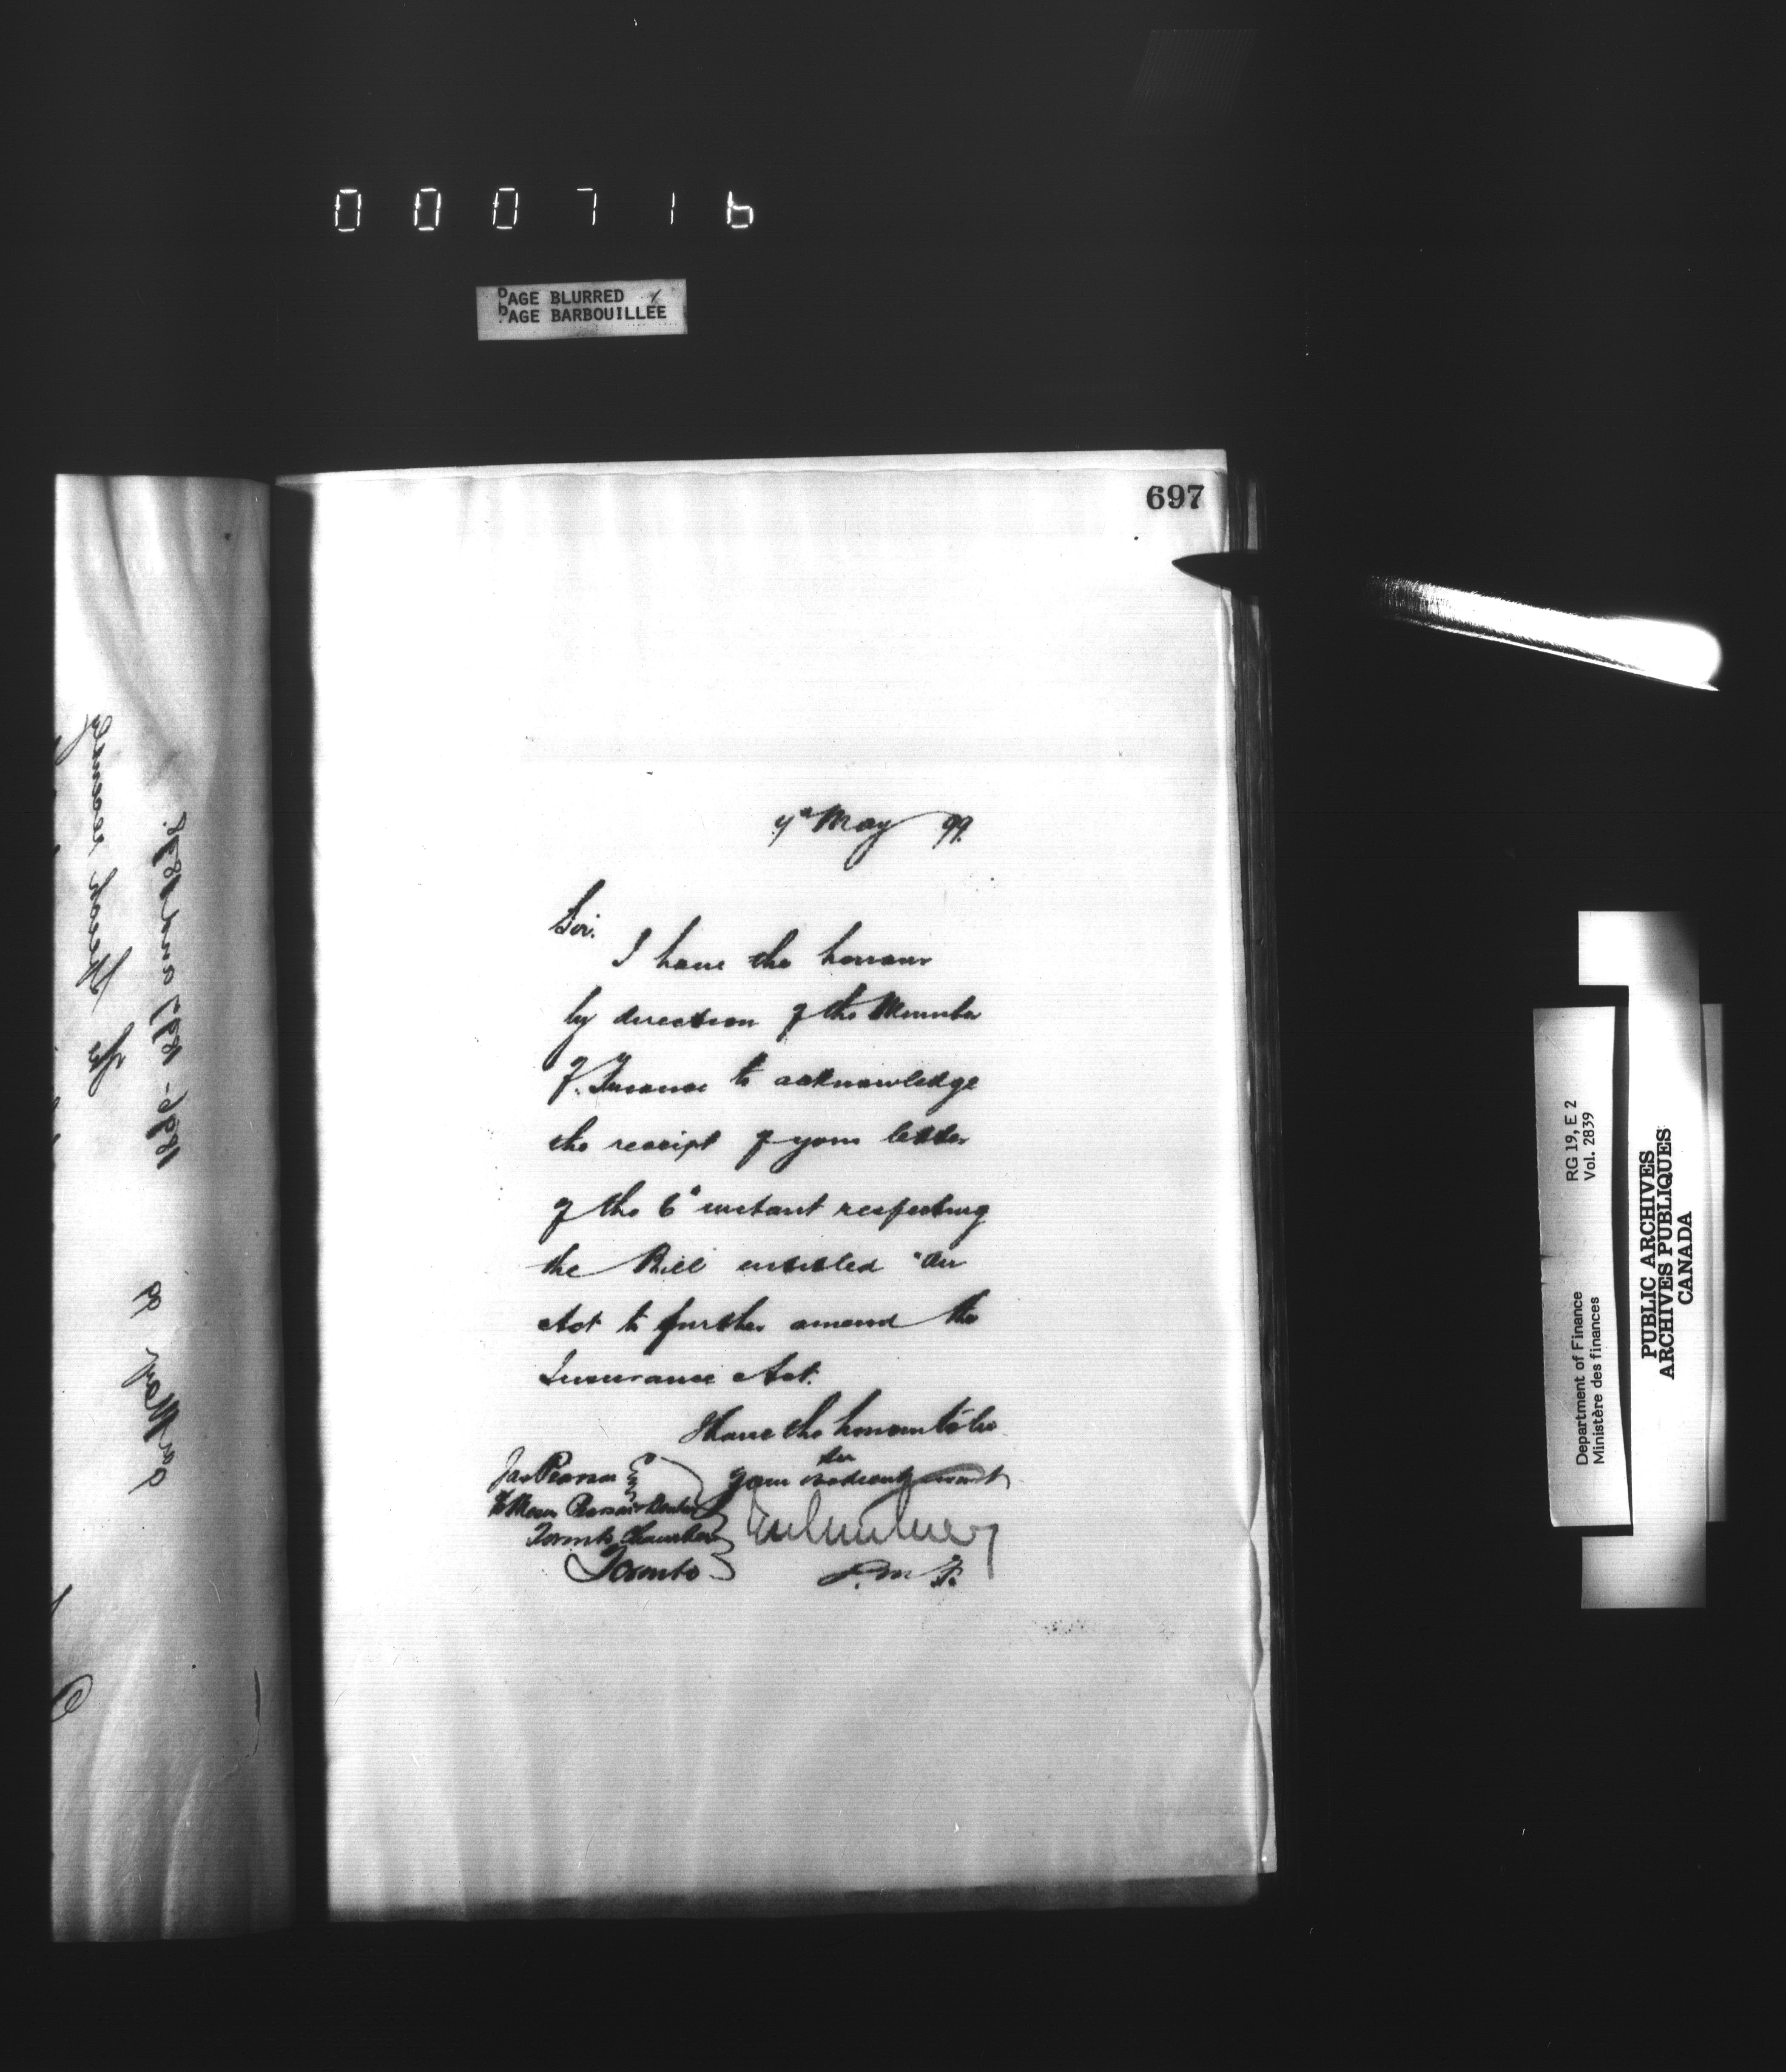 000716
PAGE BLURRED
PAGE BARBOUILLÉE
697
9th May 99.
Sir.
I have the honour
by direction of the Minister
of Finance to acknowledge
the receipt of your letter
of the 6th instant respecting
the Bill entitled "An
Act to further amend the
Insurance Act.
I have the honour to be
Sir
Your obedient servant
Jas Pearson
Toronto Chambers
Toronto
D. M. F.
RG 19, E 2
Vol. 2839
Department of Finance
Ministère des finances
PUBLIC ARCHIVES
ARCHIVES PUBLIQUES
CANADA